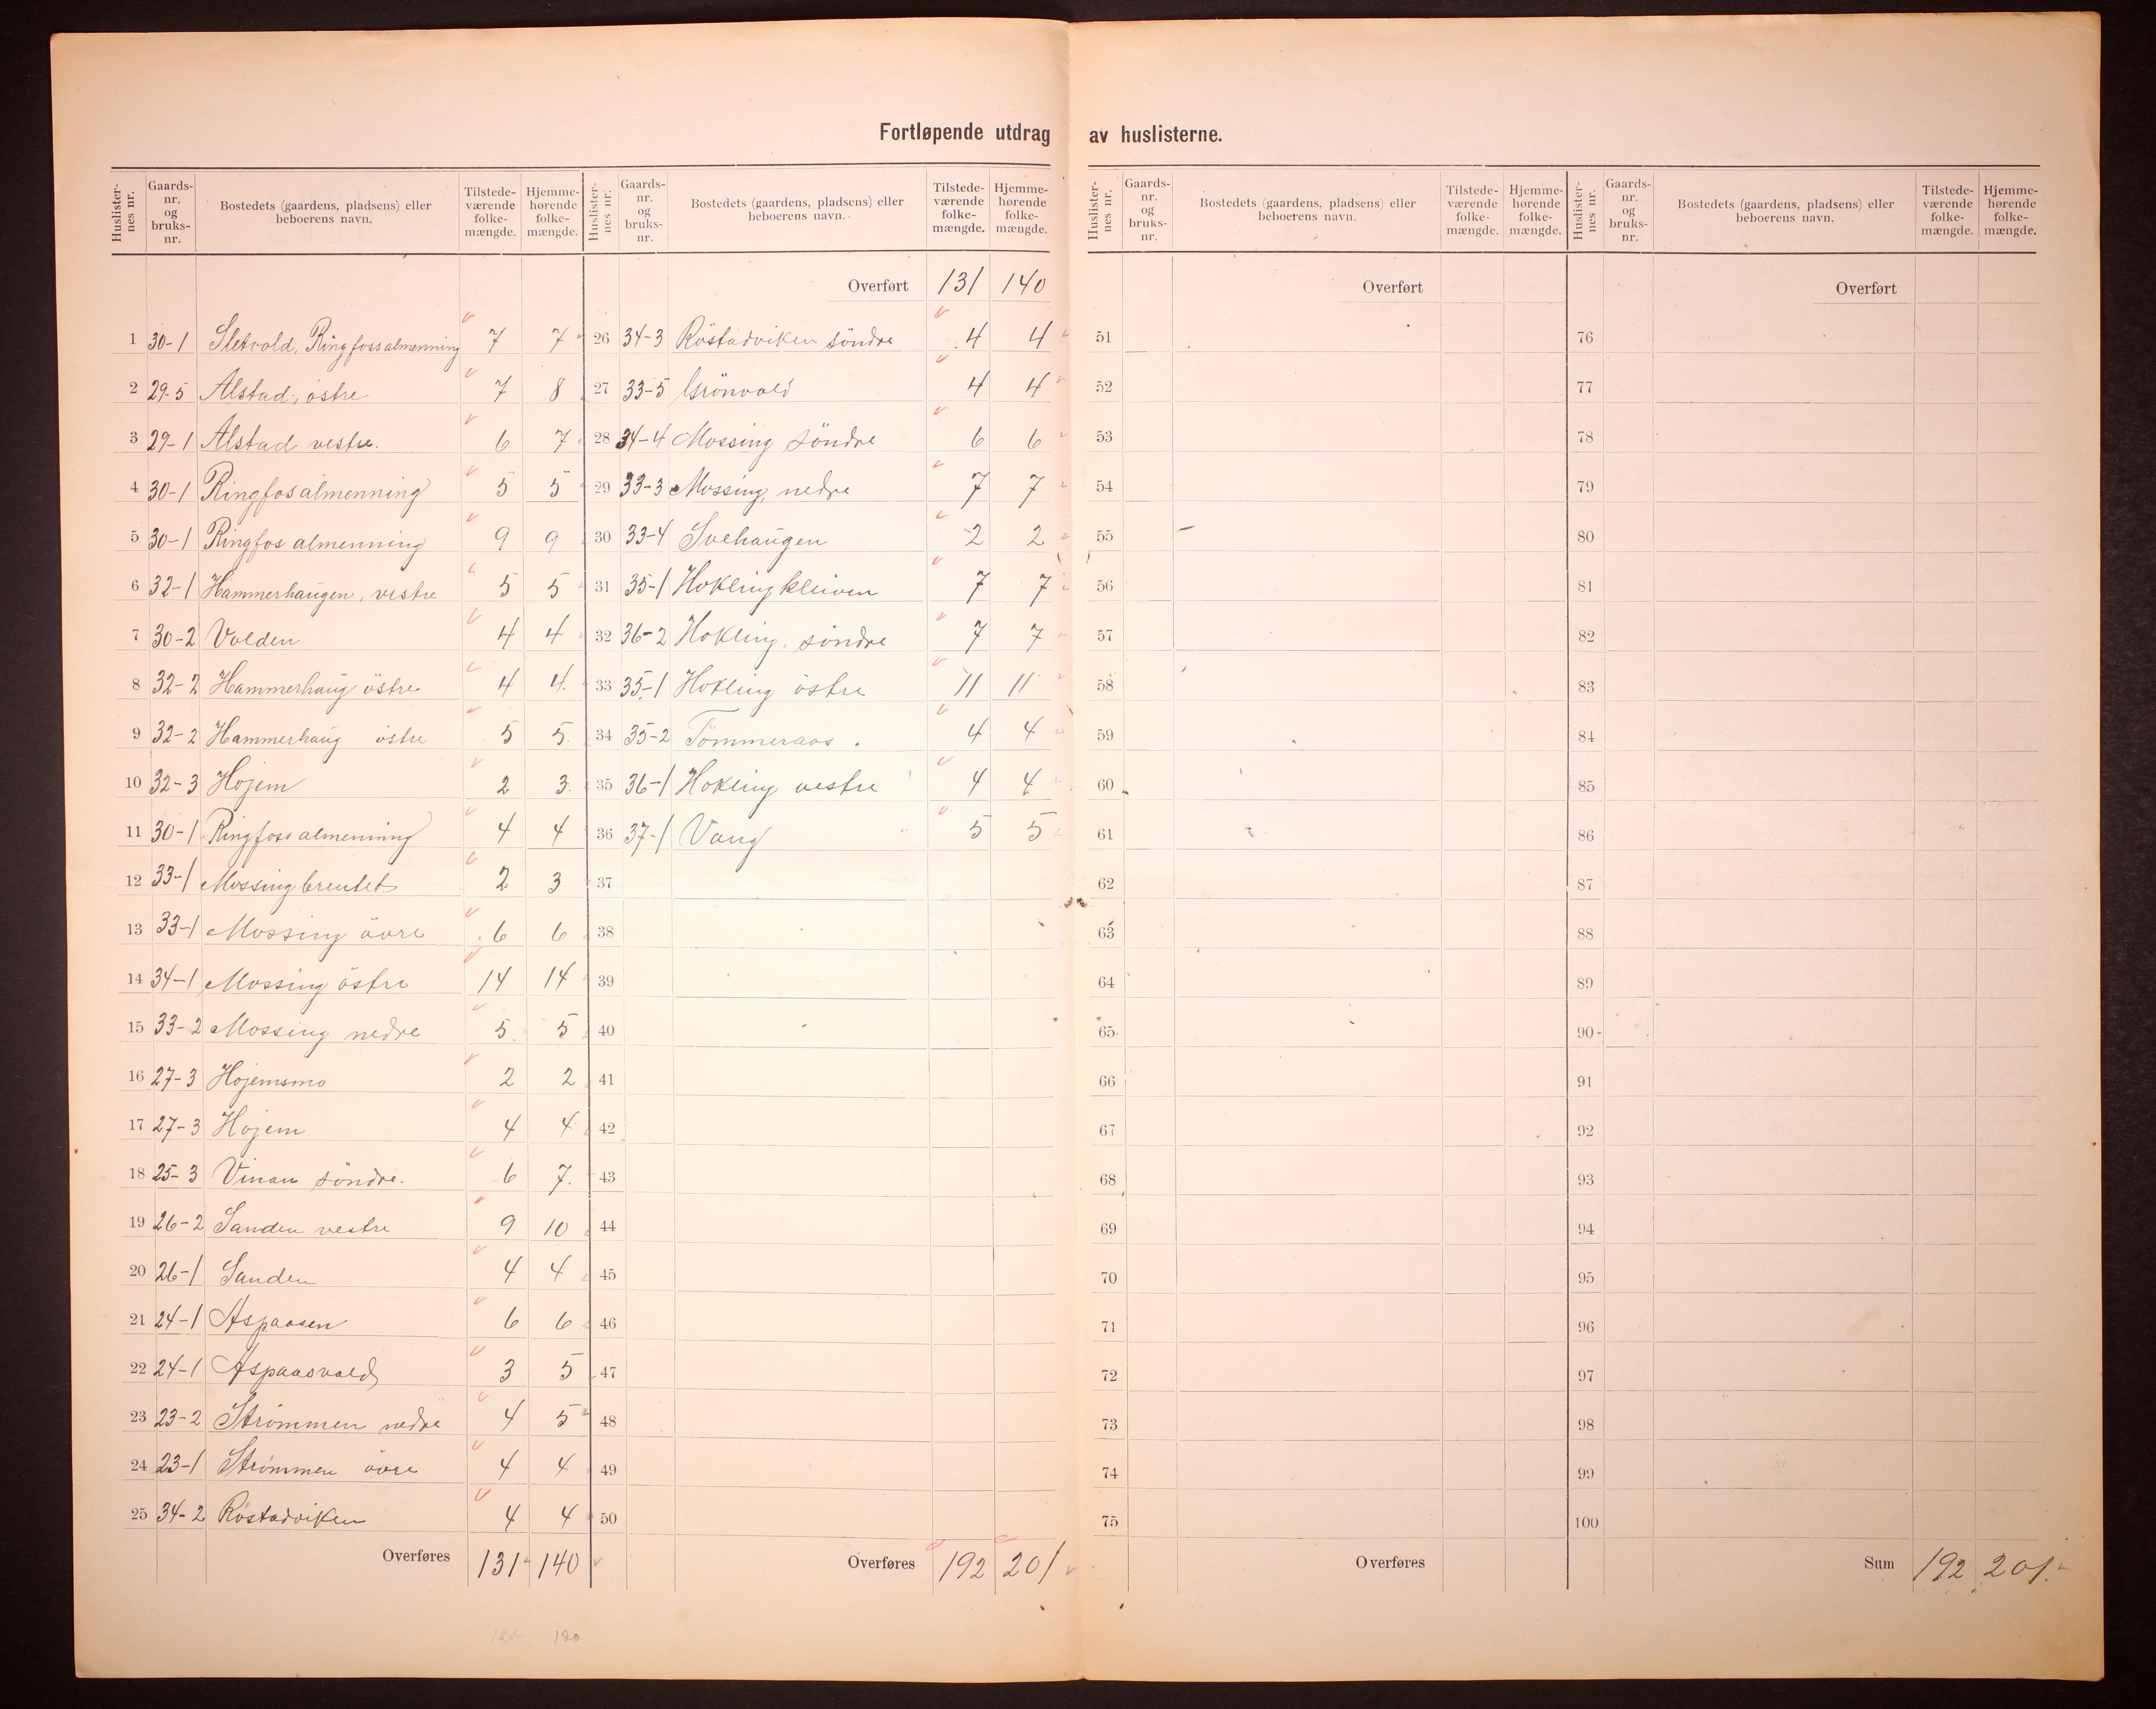 Fortløpende utdrag av huslisterne.
Huslister-nes nr. Gaards-nr. og bruks-nr. Bostedets (gaardens, pladsens) eller beboerens navn. Tilstede-værende folke-mængde. Hjemme-hørende folke-mængde.
1 30-1 Sletvold, Ringfossalmenning 7 7
2 29-5 Alstad, östre 7 8
3 29-1 Alstad vestre. 6 7
4 30-1 Ringfosalmenning 5 5
5 30-1 Ringfos almenning 9 9
6 32-1 Hammerhaugen, vestre 5 5
7 30-2 Volden 4 4
8 32-2 Hammerhaug östre 4 4
9 32-2 Hammerhaug östre 5 5
10 32-3 Hojem 2 3
11 30-1 Ringfoss almenning 4 4
12 33-1 Mossingbrentet 2 3
13 33-1 Mossing övre 6 6
14 34-1 Mossing östre 14 14
15 33-2 Mossing nedre 5 5
16 27-3 Hojemsmo 2 2
17 27-3 Hojem 4 4
18 25-3 Vinan söndre. 6 7.
19 26-2 Sanden vestre 9 10
20 26-1 Sanden 4 4
21 24-1 Aspaasen 6 6
22 24-1 Aspaasvold 3 5
23 23-2 Strömmen nedre 4 5
24 23-1 Strömmen övre 4 4
25 34-2 Röstadviken 4 4
Overføres 131 140
Huslister-nes nr. Gaards-nr. og bruks-nr. Bostedets (gaardens, pladsens) eller beboerens navn. Tilstede-værende folke-mængde. Hjemme-hørende folke-mængde.
Overført 131 140
26 34-3 Röstadviken söndre 4 4
27 33-5 Grönvold 4 4
28 34-4 Mossing söndre 6 6
29 33-3 Mossing, nedre 7 7
30 33-4 Svehaugen 2 2
31 35-1 Hoklingkleiven 7 7
32 36-2 Hokling, söndre 7 7
33 35-1 Hokling östre 11 11
34 35-2 Tömmeraas. 4 4
35 36-1 Hokling vestre 4 4
36 37-1 Vang 5 5
37
38
39
40
41
42
43
44
45
46
47
48
49
50
Overføres 192 201
Huslister-nes nr. Gaards-nr. og bruks-nr. Bostedets (gaardens, pladsens) eller beboerens navn. Tilstede-værende folke-mængde. Hjemme-hørende folke-mængde.
Overført
51
52
53
54
55
56
57
58
59
60
61
62
63
64
65
66
67
68
69
70
71
72
73
74
75
Overføres
Huslister-nes nr. Gaards-nr. og bruks-nr. Bostedets (gaardens, pladsens) eller beboerens navn. Tilstede-værende folke-mængde. Hjemme-hørende folke-mængde.
Overført
76
77
78
79
80
81
82
83
84
85
86
87
88
89
90
91
92
93
94
95
96
97
98
99
100
Sum 192 201.